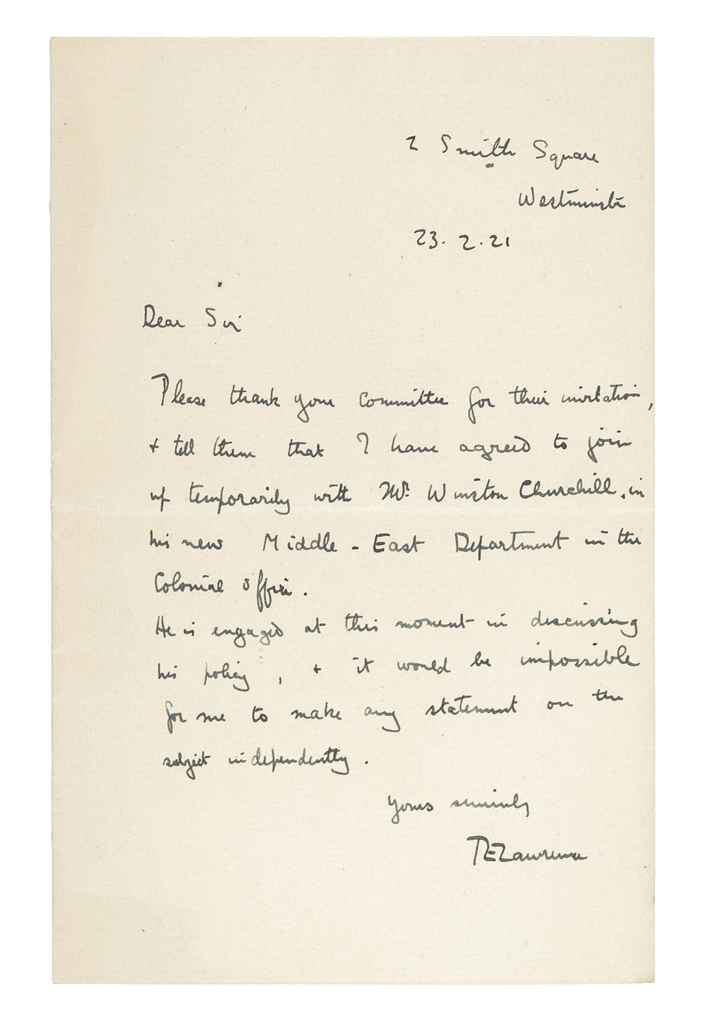 2 Smith Square
Westminster
23.2.21
Dear Sir
Please thank your committee for their invitation,
+ tell them that I have agreed to join
up temporarily with Mr. Winston Churchill, in
his new Middle-East Department in the
Colonial Office.
He is engaged at this moment in discussing
his policy, + it would be impossible
for me to make any statement on the
subject independently.
Yours sincerely
TELawrence